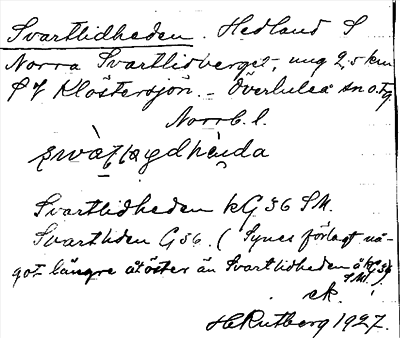 Svartlidheden. Hedland S
Norra Svartlidberget, ung 2,5 km
SV Klöstersjön. - Överluleå sn o. tg.
Norrb. l.
Svartlidheden kG36 SM.
Svartliden G36. (Synes förlagt nå-
got längre åt öster än Svartlidheden å kG36
SM.)
ck.
H. Rutberg 1927.